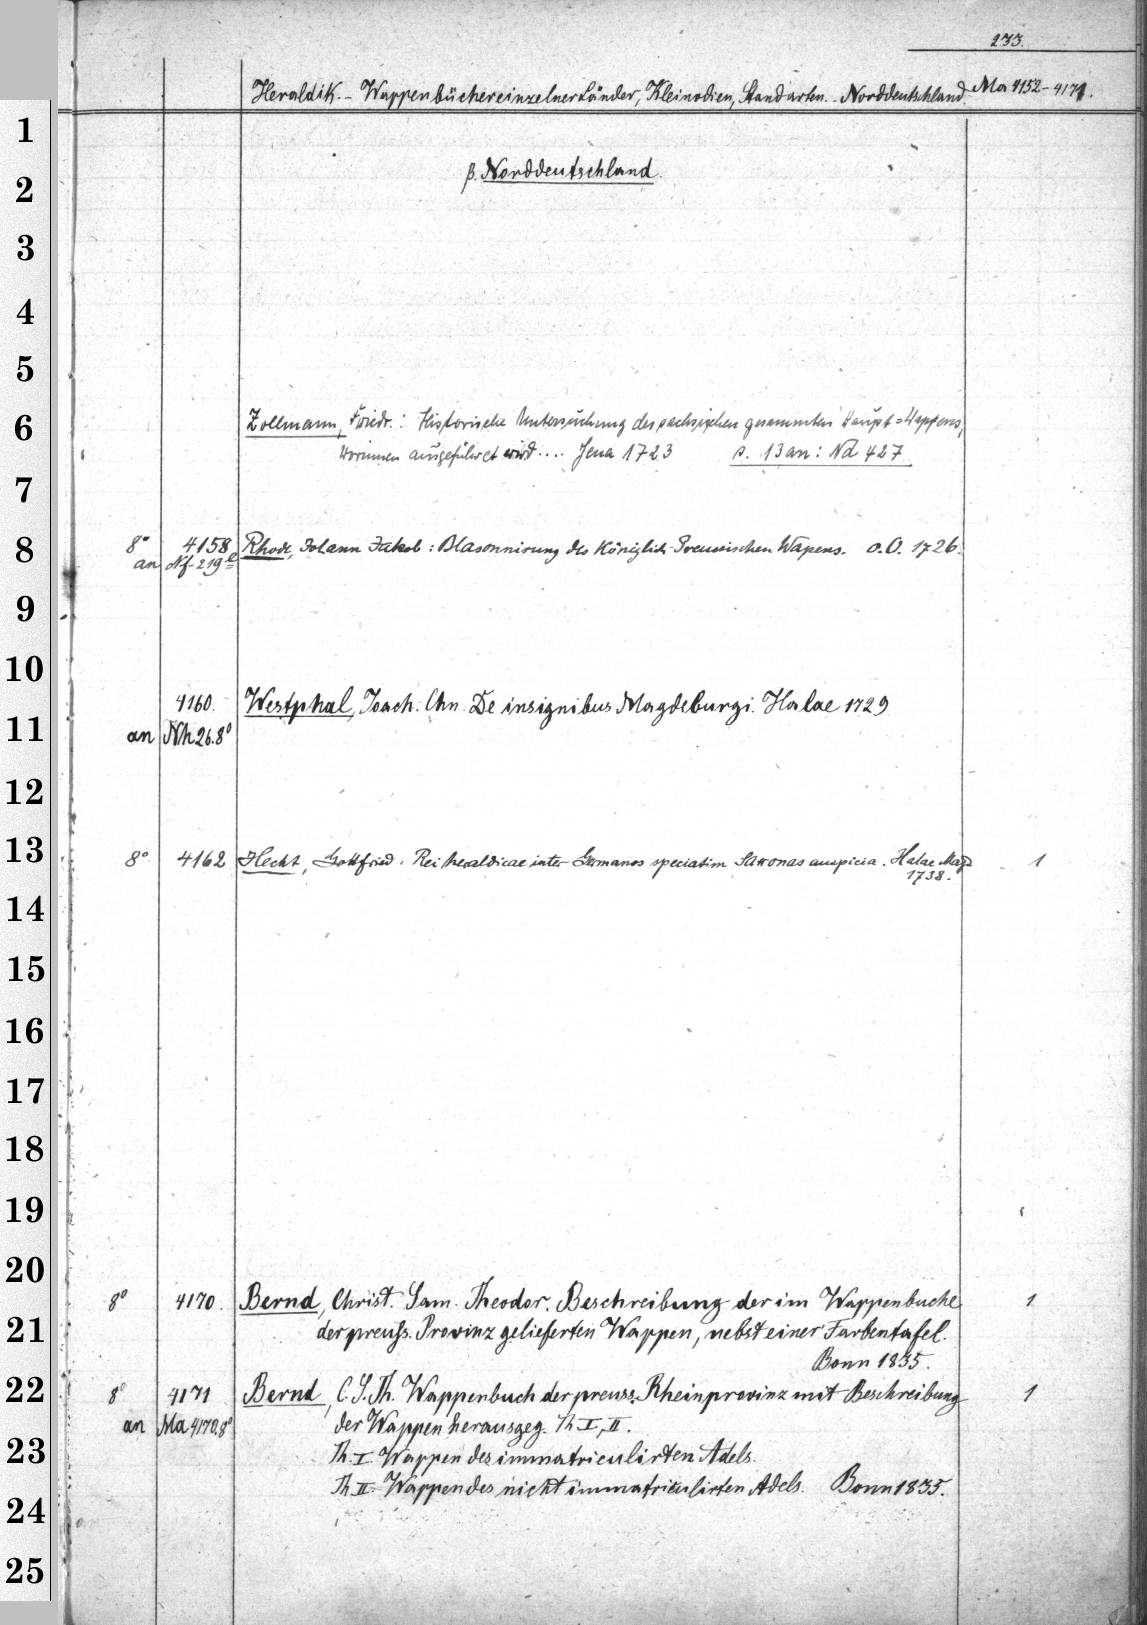 233.
Heraldik. - Wappenbücher einzelner Länder, Kleinodien, Standarten. - Norddeutschland. Ma 4152-4171.
β. Norddeutschland.
Zollmann, Friedr.: Historische Untersuchung des sechsischen gesammten Haupt=Wappens,
worinnen ausgeführet wird .... Jena 1723 s. 13 an: Nd 427
8° 4158 Rhode, Johann Jakob: Blasonnirung des Königlich Preussischen Wapens. o.O. 1726.
an Nf 219
4160. Westphal, Joach. Chn. De insignibus Magdeburgi. Halae 1729
an Nh 26.8°
8° 4162 Hecht, Gottfried. Rei heraldicae inter Germanos speciatim Saxonas auspicia. Halae Magd 1
1738.
8° 4170. Bernd, Christ. Sam. Theodor. Beschreibung der im Wappenbuche 1
der preuss. Provinz gelieferten Wappen, nebst einer Farbentafel.
Bonn 1835.
8° 4171 Bernd, C. S. Th. Wappenbuch der preuss. Rheinprovinz mit Beschreibung 1
an Ma 4170.8° der Wappen herausgeg. Th I, II.
Th. I Wappen des immatriculirten Adels.
Th. II. Wappen des nicht immatriculirten Adels. Bonn 1835.
1
2
3
4
5
6
7
8
9
10
11
12
13
14
15
16
17
18
19
20
21
22
23
24
25